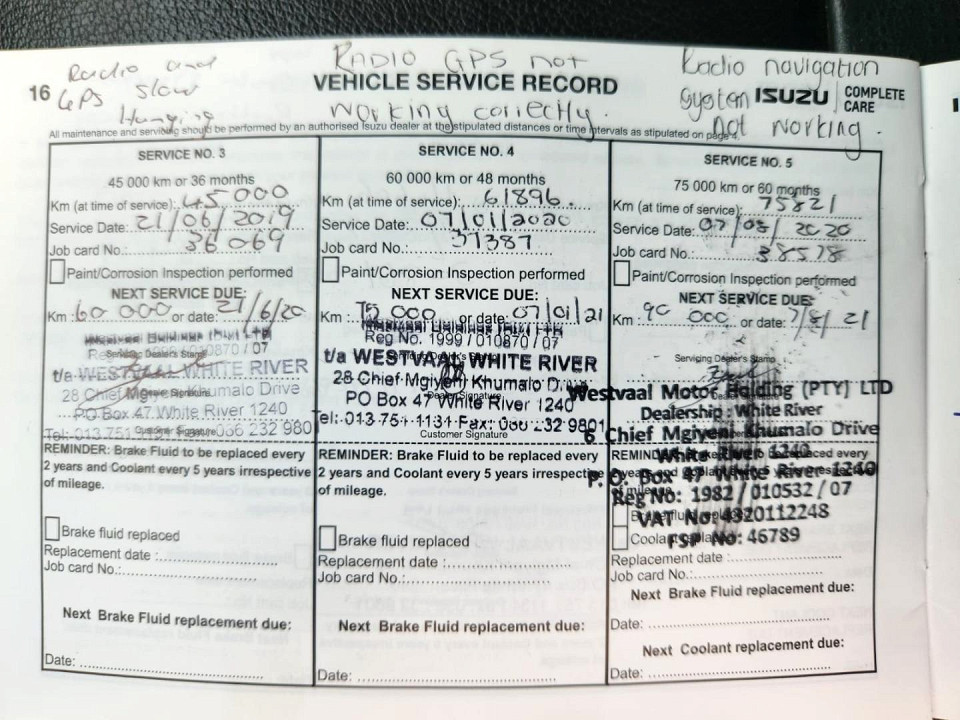 Radio and
GPS slow
Hanging
RADIO GPS not
working correctly.
Radio navigation
system
not working.
16
VEHICLE SERVICE RECORD
ISUZU COMPLETE CARE
All maintenance and servicing should be performed by an authorised Isuzu dealer at the stipulated distances or time intervals as stipulated on page
SERVICE NO. 3
45 000 km or 36 months
Km (at time of service): 45000
Service Date: 21/06/2019
Job card No.: 36069
Paint/Corrosion Inspection performed
NEXT SERVICE DUE:
Km : 60 000 or date: 21/6/20
Servicing Dealer's Stamp
t/a WESTVAAL WHITE RIVER
28 Chief Khumalo Drive
PO Box 47 White River 1240
Customer Signature
REMINDER: Brake Fluid to be replaced every
2 years and Coolant every 5 years irrespective
of mileage.
Brake fluid replaced
Replacement date :
Job card No.:
Next Brake Fluid replacement due:
Date:
SERVICE NO. 4
60 000 km or 48 months
Km (at time of service): 61896
Service Date: 07/01/2020
Job card No.: 37387
Paint/Corrosion Inspection performed
NEXT SERVICE DUE:
Km : 75 000 or date: 07/01/21
Reg No. 1999 / 010870 / 07
t/a WESTVAAL WHITE RIVER
28 Chief Mgiyeni Khumalo Drive
PO Box 47 White River 1240
Tel: 013 751 1131 Fax: 086 232 9801
Customer Signature
REMINDER: Brake Fluid to be replaced every
2 years and Coolant every 5 years irrespective
of mileage.
Brake fluid replaced
Replacement date :
Job card No.:
Next Brake Fluid replacement due:
Date:
SERVICE NO. 5
75 000 km or 60 months
Km (at time of service): 75821
Service Date: 07/08/2020
Job card No.: 38578
Paint/Corrosion Inspection performed
NEXT SERVICE DUE:
Km : 90 000 or date: 7/8/21
Servicing Dealer's Stamp
Westvaal Motor Holding (PTY) LTD
Dealership : White River
6 Chief Mgiyeni Khumalo Drive
White River 1240
P. O. Box 47 White River 1240
Reg No: 1982 / 010532 / 07
VAT No: 4320112248
FSP No: 46789
Replacement date :
Job card No.:
Next Brake Fluid replacement due:
Date:
Next Coolant replacement due:
Date: